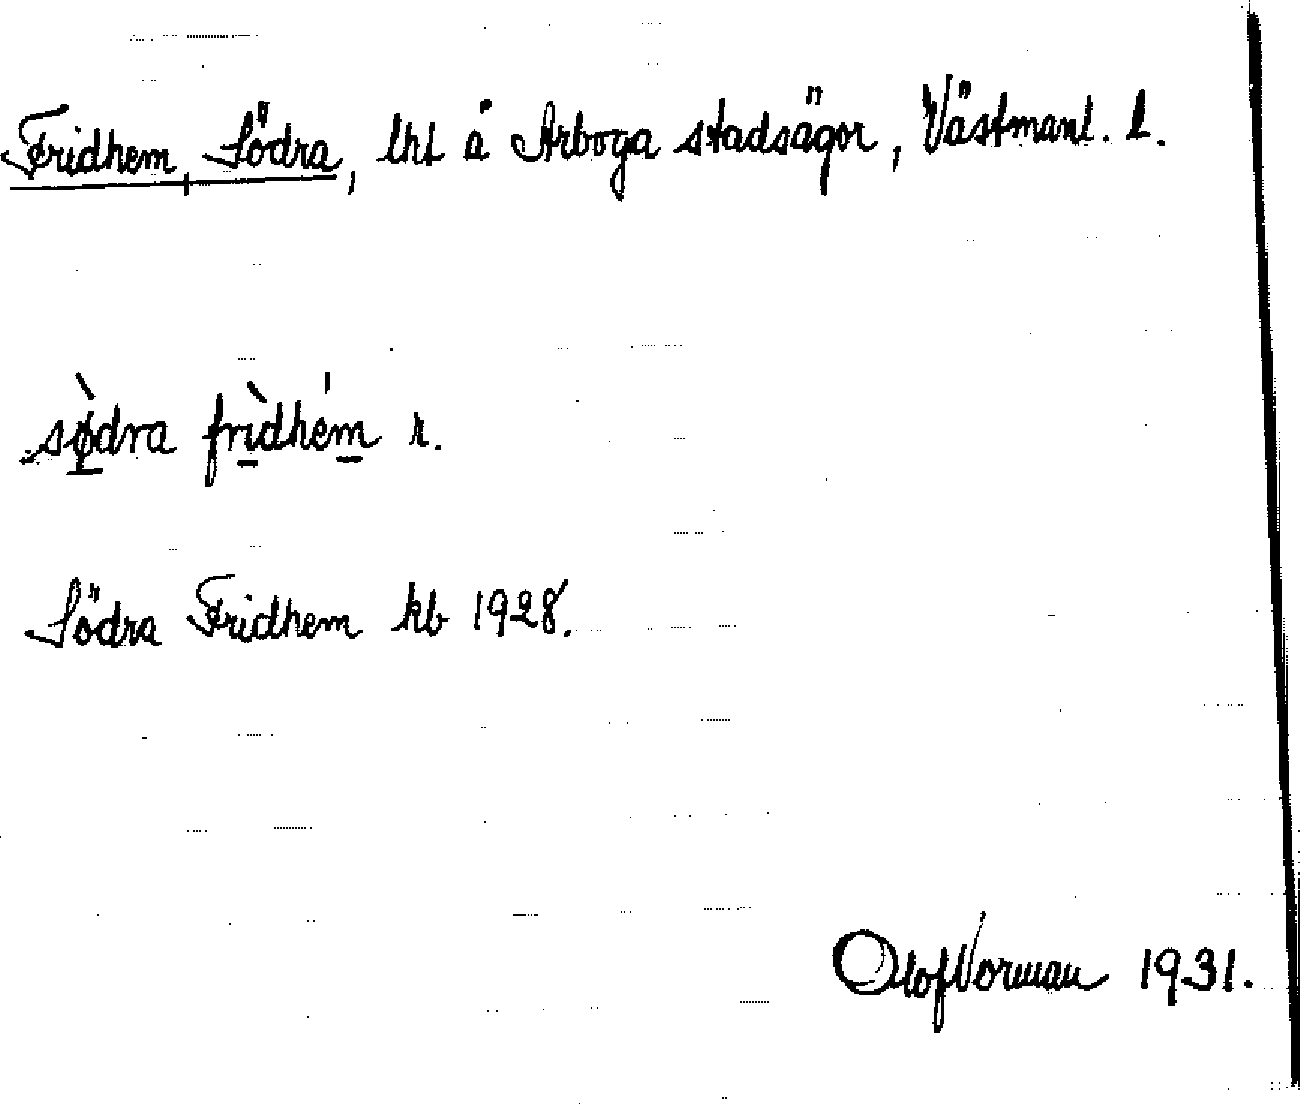 Fridhem, Södra, lht å Arboga stadsägor, Västmanl. l.
sø̀dra frìdhém r.
Södra Fridhem kb 1928.
Olof Vorman 1931.